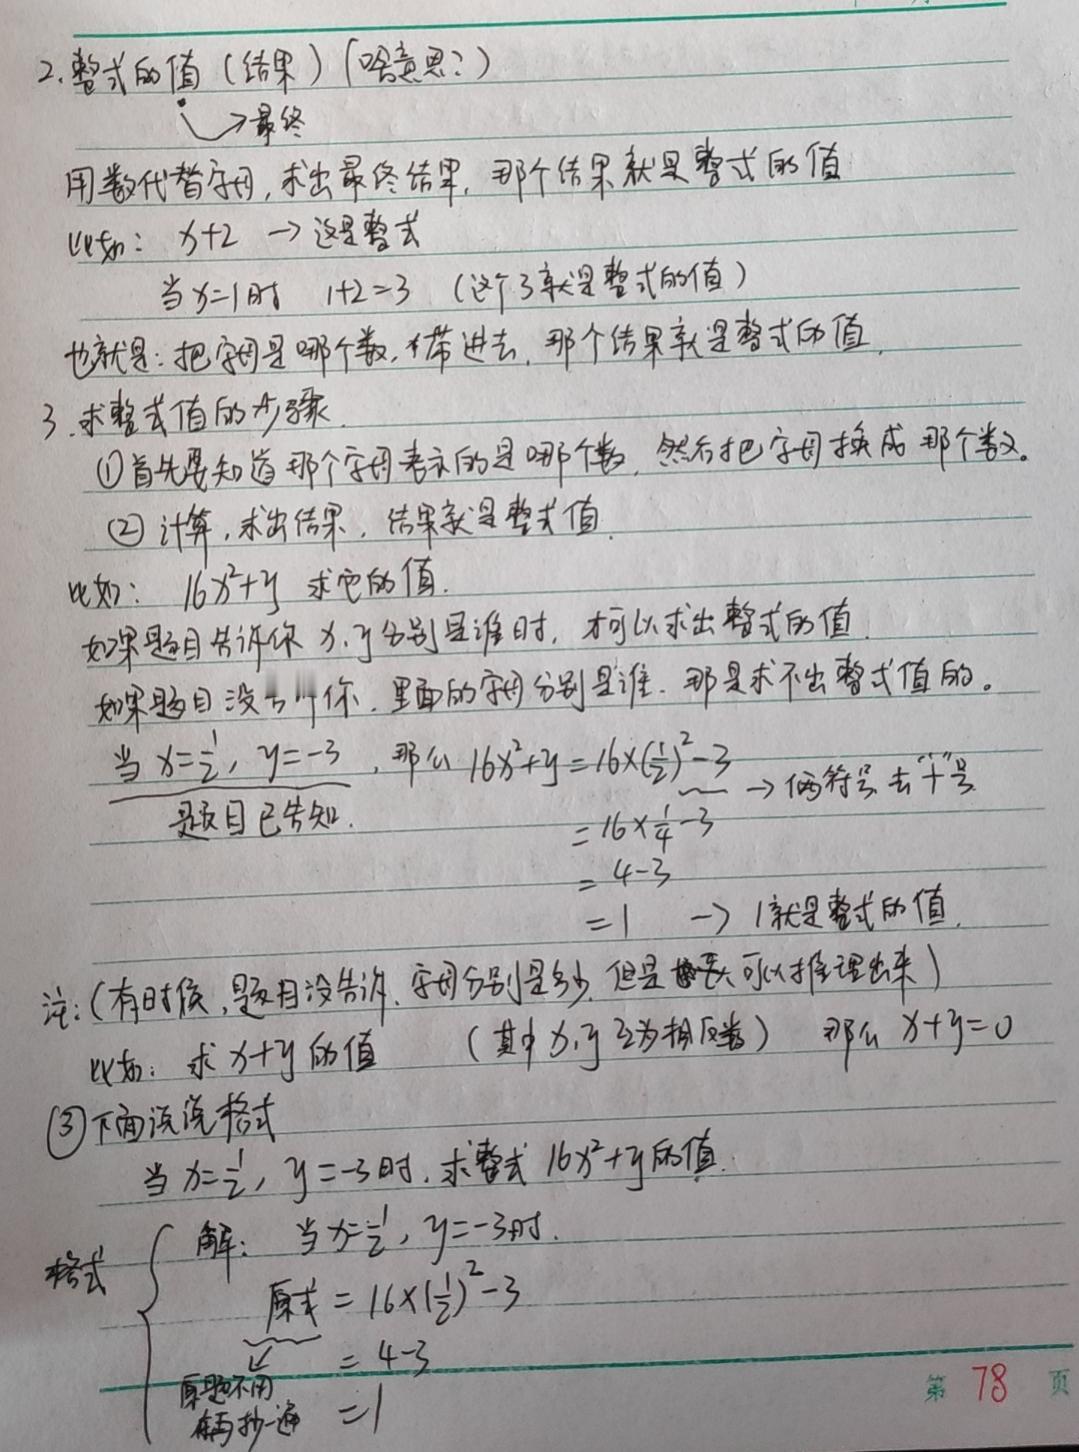 2.整式的值(结果)(啥意思?)
→最终
用数代替字母,求出最终结果,那个结果就是整式的值
比如: x+2 →这是整式
当x=1时 1+2=3 (这个3就是整式的值)
也就是:把字母是哪个数,带进去,那个结果就是整式的值.
3.求整式值的步骤.
①首先要知道那个字母表示的是哪个数,然后把字母换成那个数。
②计算,求出结果,结果就是整式值.
比如: 16x²+y 求它的值.
如果题目告诉你x、y分别是谁时,才可以求出整式的值.
如果题目没告诉你,里面的字母分别是谁.那是求不出整式值的。
当x=1/2, y=-3,那么16x²+y=16×(1/2)²-3 →俩符号去"+"号
题目已告知.
=16×1/4-3
=4-3
=1 →1就是整式的值.
注:(有时候,题目没告诉,字母分别是多少,但是可以推理出来)
比如:求x+y的值 (其中x,y互为相反数) 那么x+y=0
③下面说说格式
当x=1/2, y=-3时,求整式16x²+y的值.
格式 解: 当x=1/2, y=-3时.
原式=16×(1/2)²-3
=4-3
原题不用
再抄一遍 =1
第 78 页